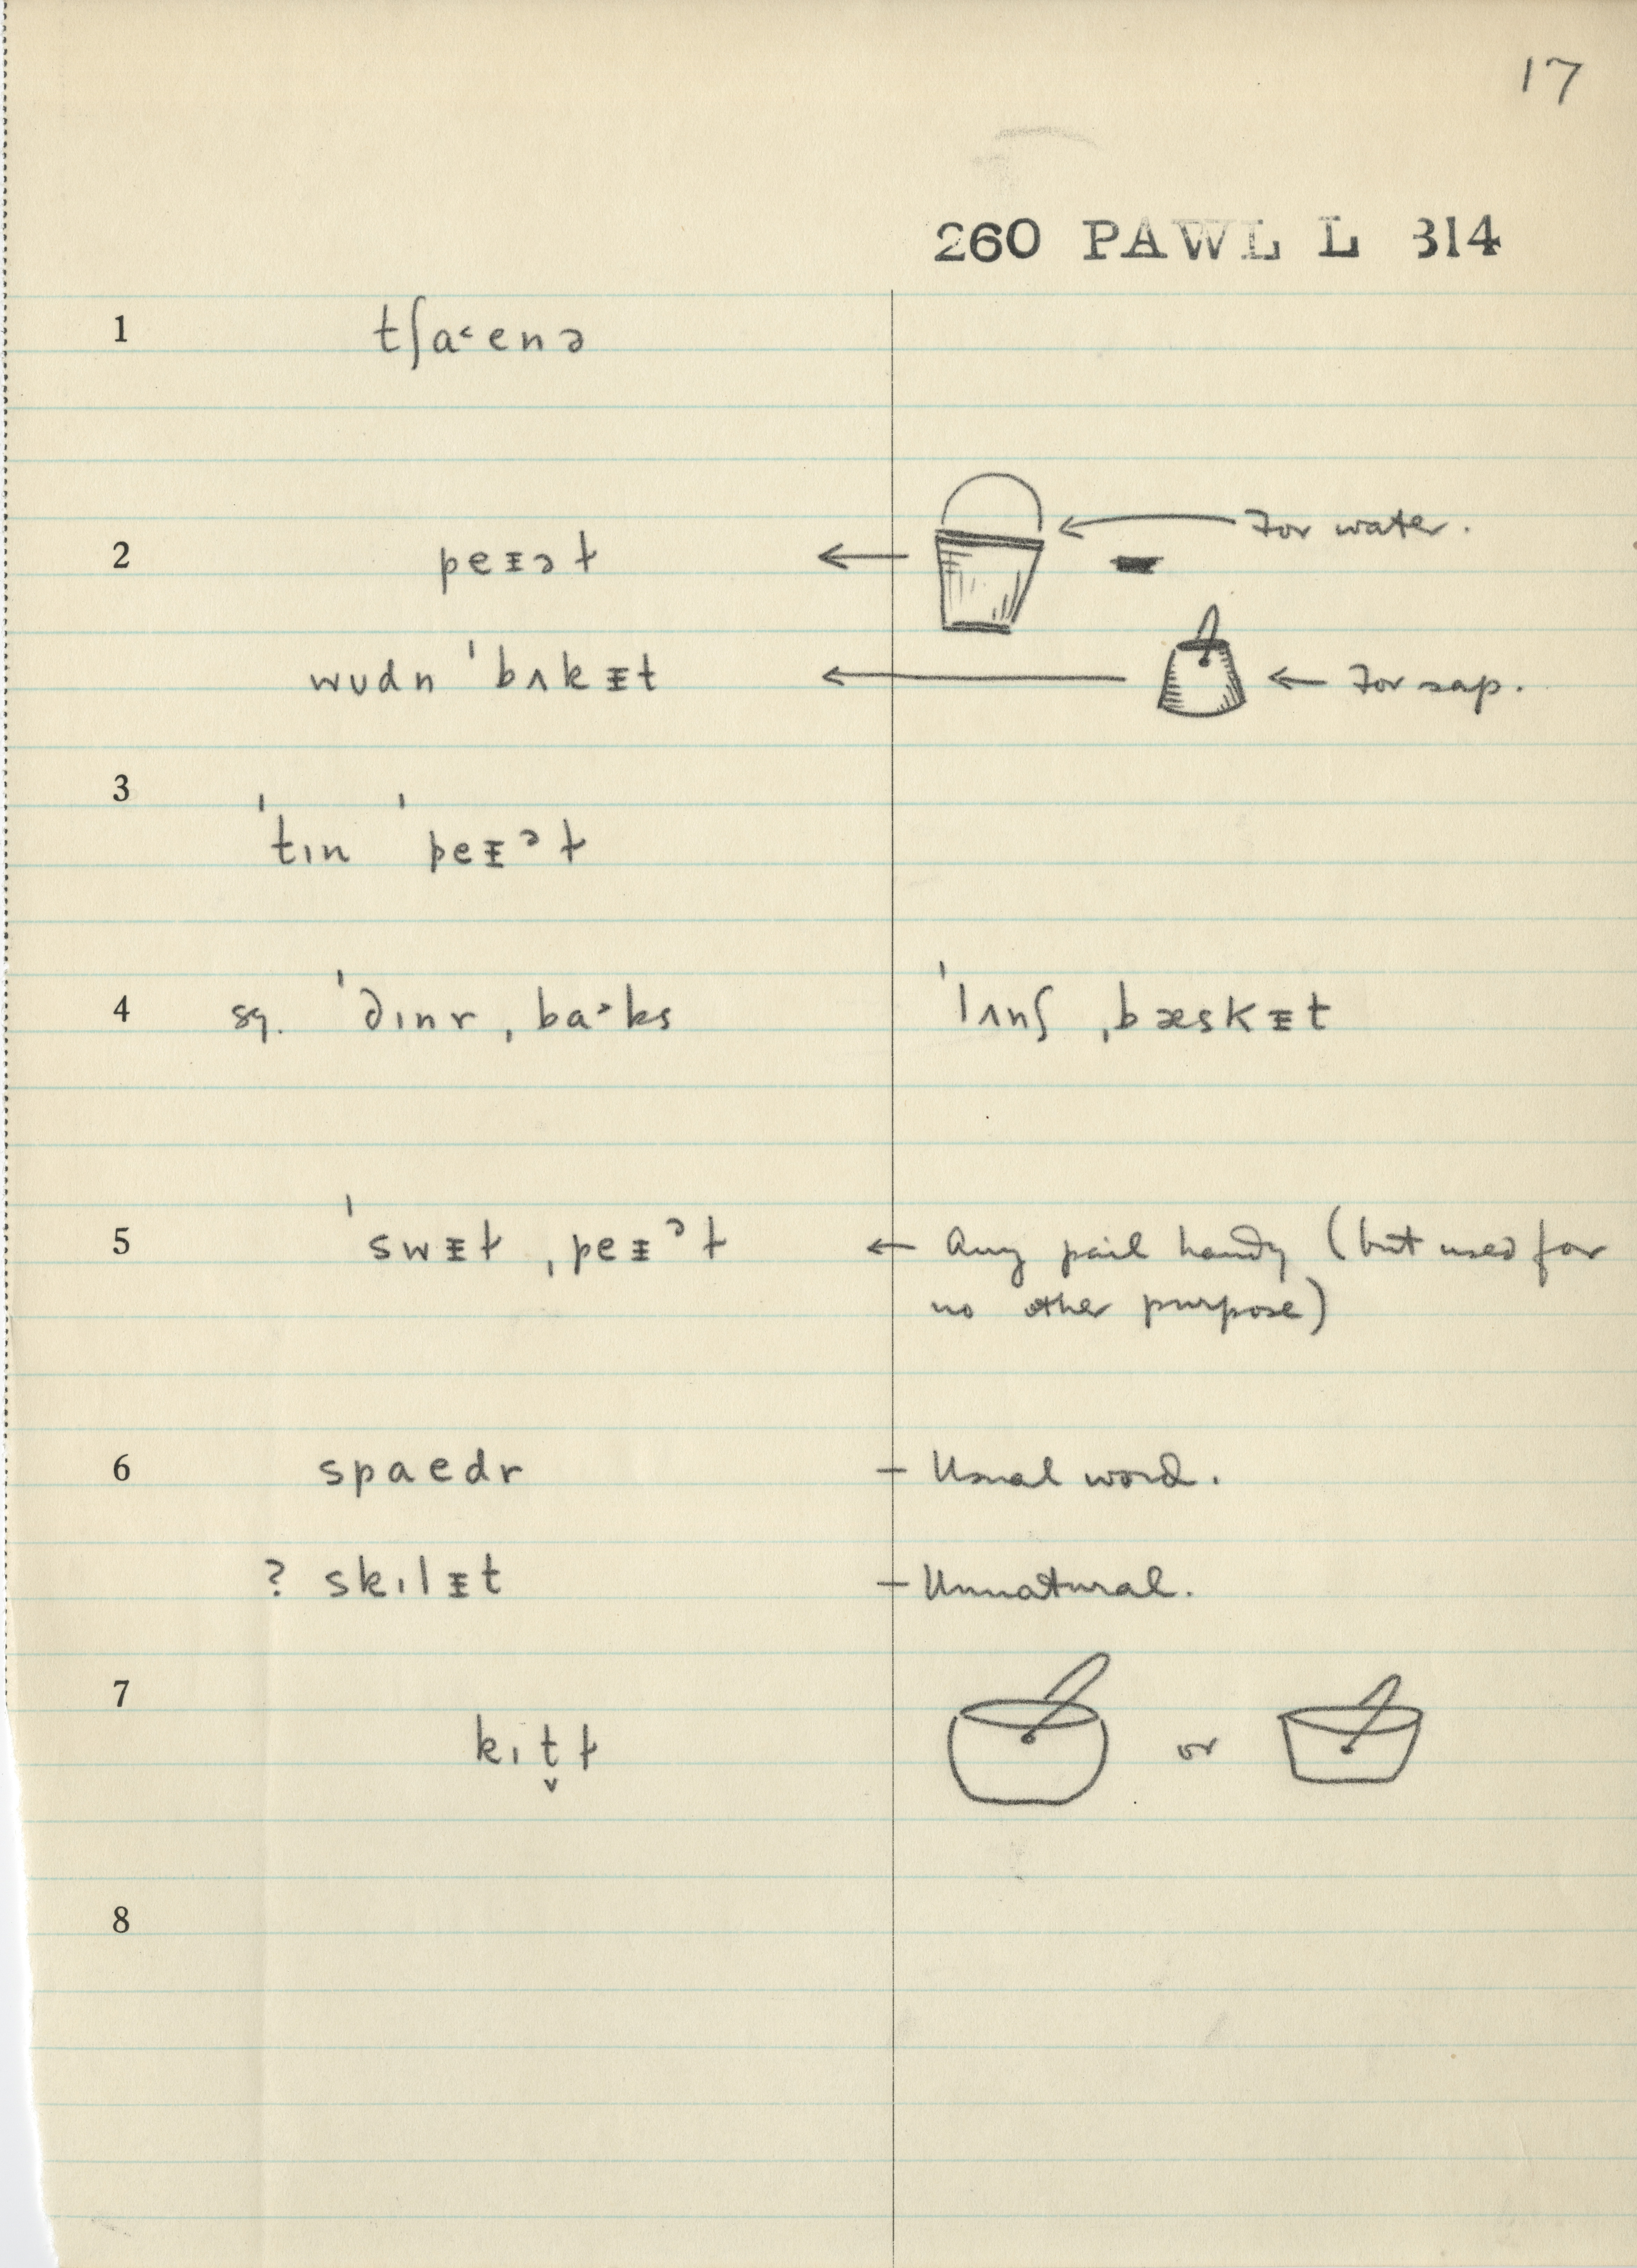 17
260 PAWL L 314
1 tʃa˂enə
2 peᵻəɫ ← ← For water.
wudn ˈbʌkᵻt ← ← For sap.
3
ˈtɪn ˈpeᵻᵊɫ
4 sg. ˈdɪnr ˌba˃ks ˈlʌnʃ ˌbæskᵻt
5 ˈswᵻɫ ˌpeᵻᵊɫ ← Any pail handy (but used for
no other purpose)
6 spaedr — Usual word.
? skɪlᵻt — Unnatural.
7
kɪt̬ɫ or
8